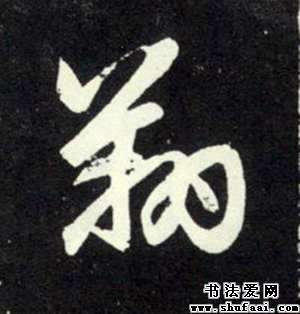 翔
书法爱网
www.shufaai.com